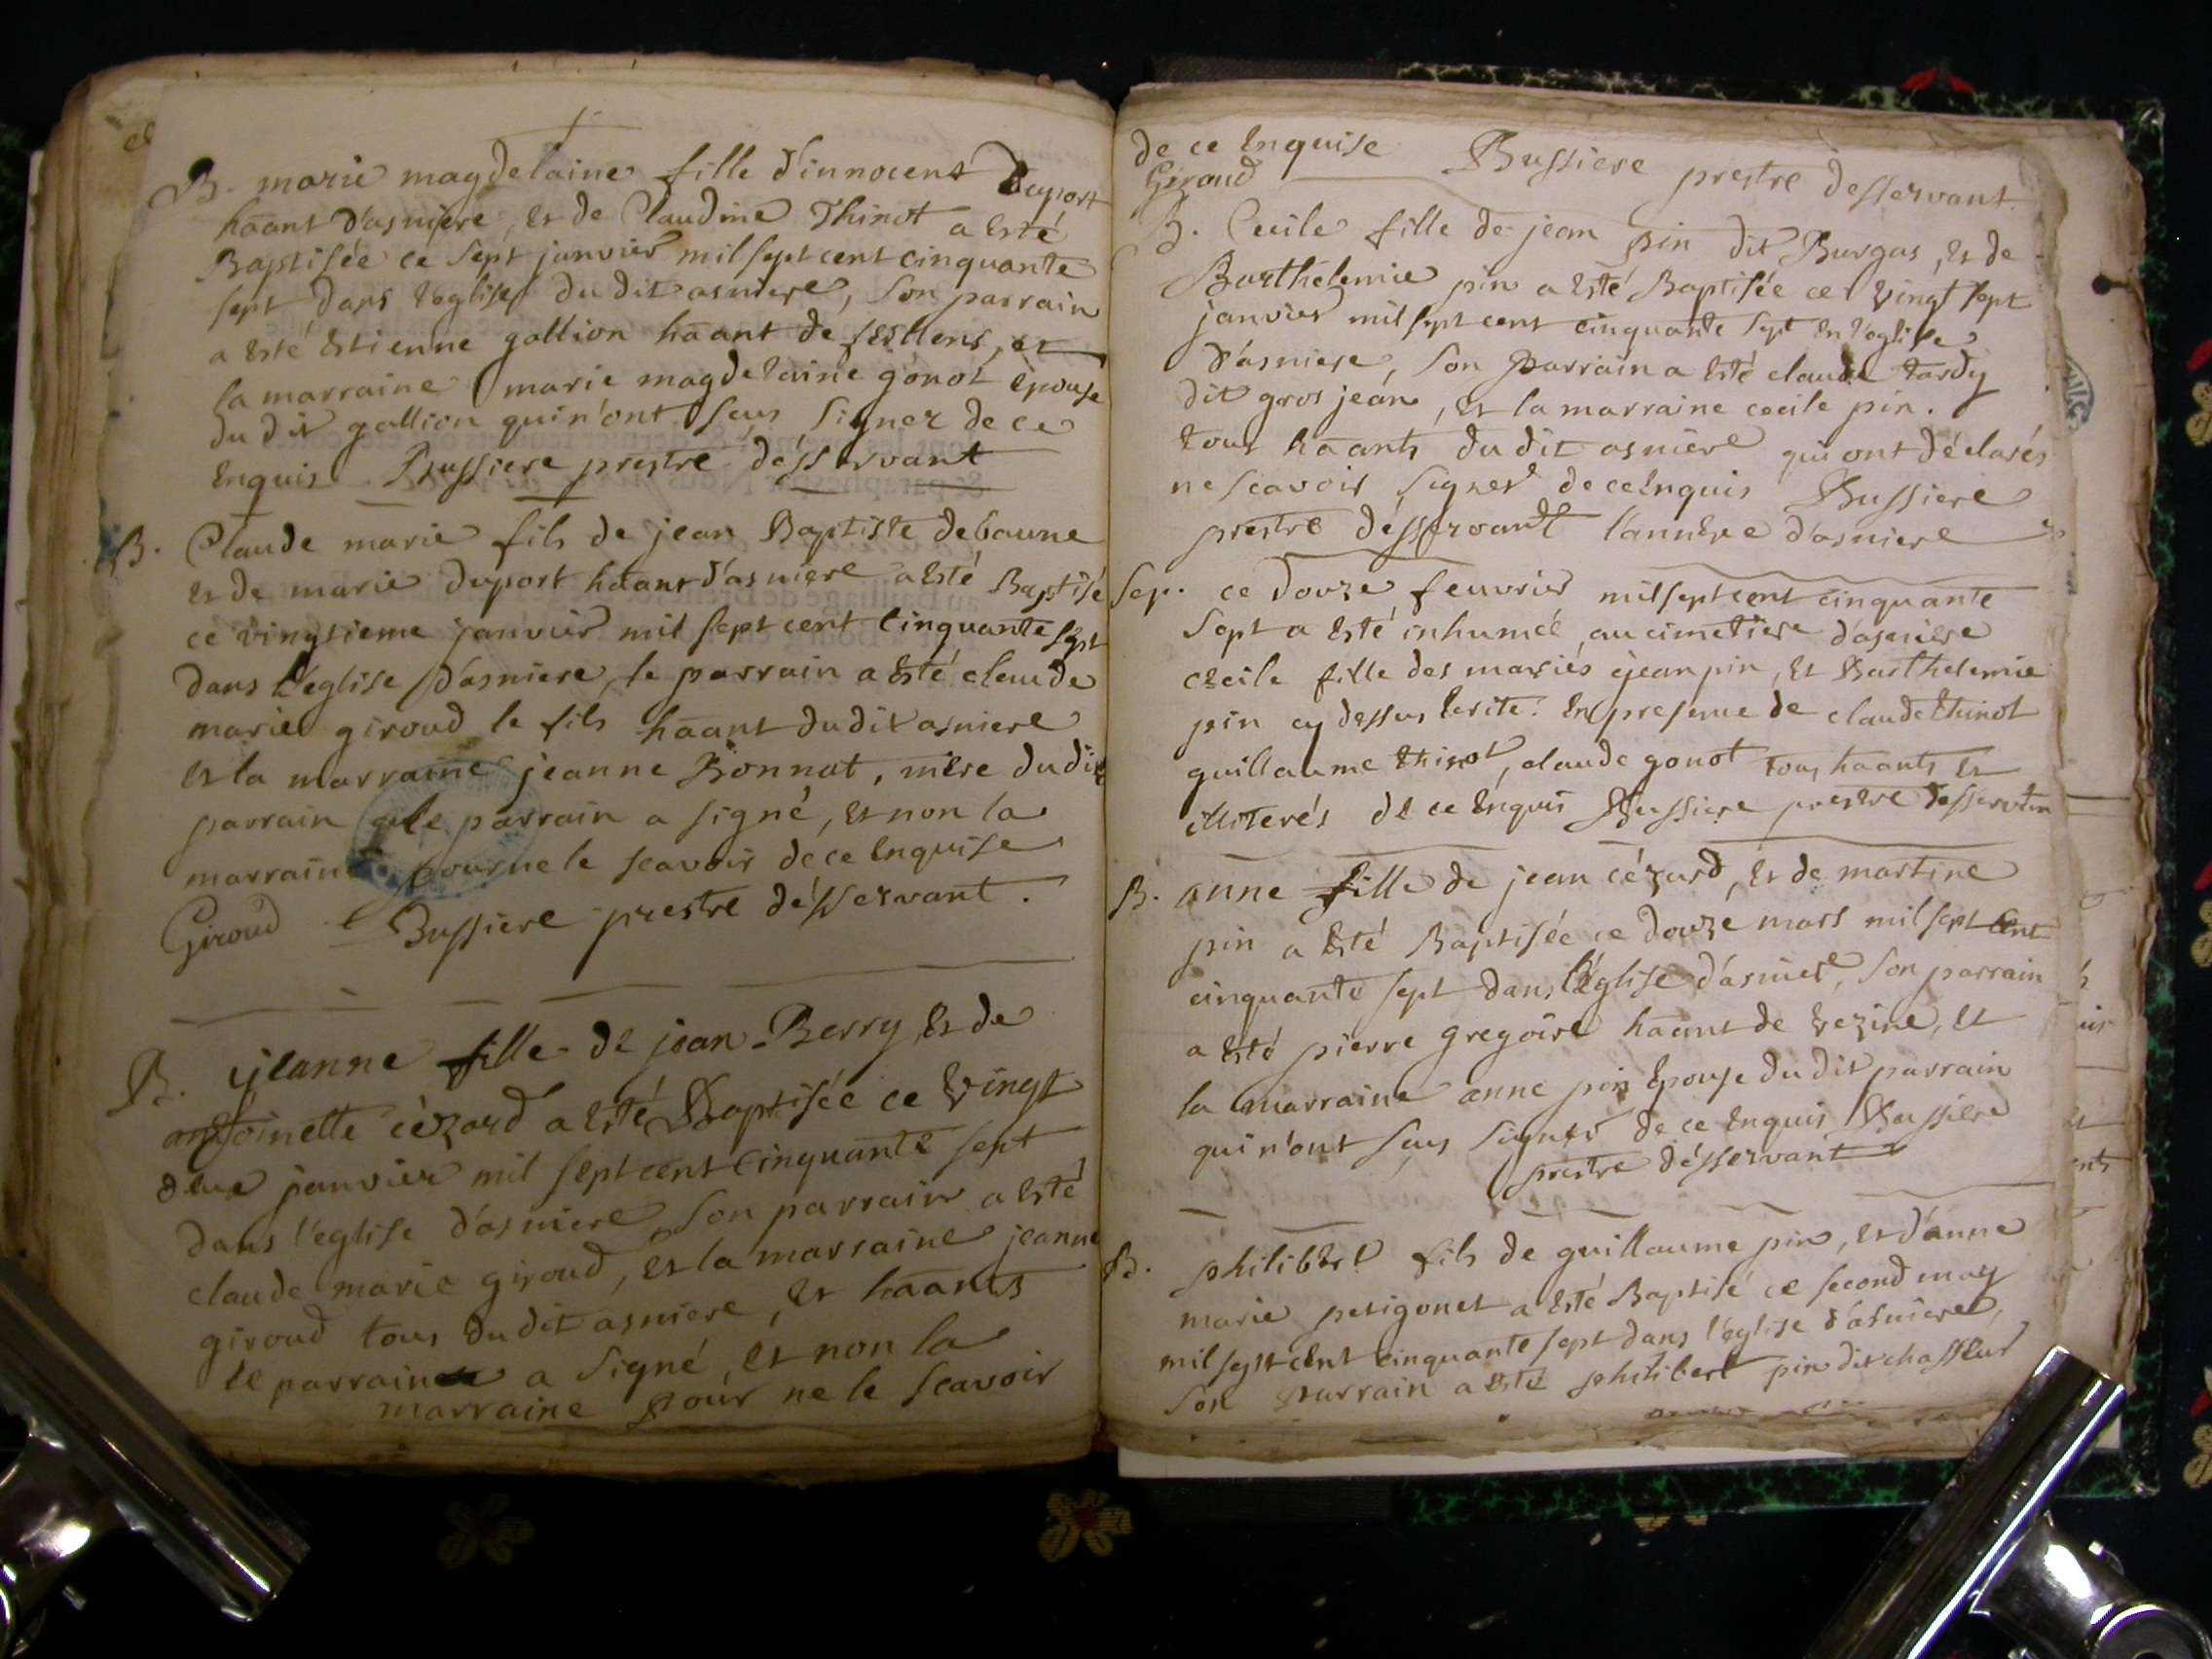 B. marie magdelaine fille d'innocent Duport
haant d'asniere, et de Claudine Thinot a esté
Baptisée ce sept janvier mil sept cent cinquante
sept dans l'eglise du dit asniere, son parrain
a esté Estienne gallion haant de feillens, et
la marraine marie magdelaine gonot épouse
du dit gallion qui n'ont sçus signer de ce
enquis Bussiere prestre désservant
B. Claude marie fils de jean Baptiste debaune
et de marie duport haant d'asniere a esté Baptisé
ce vingtieme janvier mil sept cent cinquante sept
dans l'église d'asniere, le parrain a esté claude
marie giroud le fils haant du dit asniere
et la marraine jeanne Bonnat, mere du dit
parrain le parrain a signé, et non la
marraine pour ne le scavoir de ce enquise
Giroud Bussiere prestre désservant.
B. jeanne fille de jean Berry, et de
antoinette cézard a esté Baptisée ce vingt
deux janvier mil sept cent cinquante sept
dans l'église d'asniere son parrain a esté
claude marie giroud, et la marraine jeanne
giroud tous du dit asniere, et haants
le parrain a signé, et non la
marraine pour ne le scavoir
de ce enquise Bussiere prestre dessservant
Giroud
B. Cecile fille de jean pin dit Burgas, et de
Barthelemie pin a esté Baptisée ce vingt sept
janvier mil sept cent cinquante sept en l'eglise
d'asniere, son parrain a esté claude tardy
dit gros jean, et la marraine cecile pin.
tous haants du dit asniere qui ont déclarés
ne scavoir signer de ce enquis Bussiere
prestre désservant l'annexe d'asniere
Sep. ce douze feuvrier mil sept cent cinquante
sept a esté inhumée au cimetiere d'asniere
cecile fille des mariés jean pin, et Barthelemie
pin cy dessus ecrite. En presence de claude thinot
guillaume thinot, claude gonot tous haants et
illiterés de ce enquis Bussiere prestre desservan
B. anne fille de jean cézard, et de martine
pin a esté Baptisée ce douze mars mil sept cent
cinquante sept dans l'église d'asniere, son parrain
a esté pierre gregoire haant de vezine, et
la marraine anne pin épouse du dit parrain
qui n'ont sçus signer de ce enquis Bussiere
prestre désservant
B. philibert fils de guillaume pin, et d'anne
marie petigonet a esté Baptisé ce second may
mil sept cent cinquante sept dans l'église d'asniere,
son parrain a esté philibert pin dit chasseur